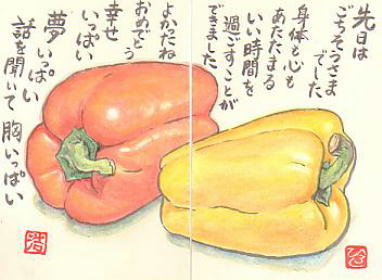 先日は
ごちそうさま
でした
身体も心も
あたたまる
いい時間を
過ごすことが
できました
よかったね
おめでとう
幸せ
いっぱい
夢いっぱい
話を聞いて胸いっぱい